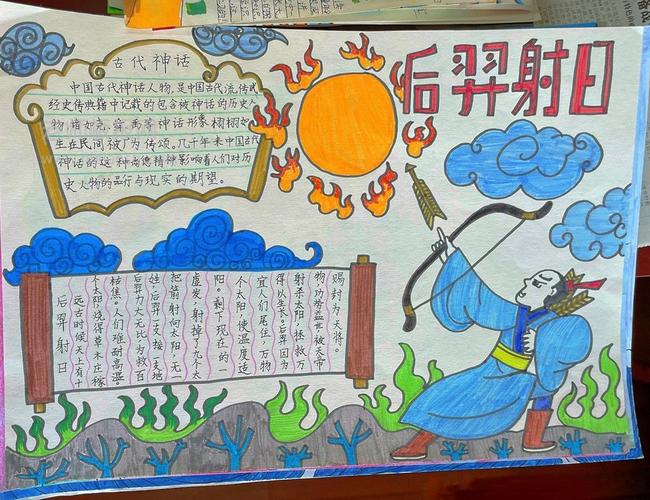 后羿射日
古代神话
中国古代神话人物,是中国古代流传或
经史传典籍中记载的包含被神话的历史人
物,诸如尧、舜、禹等神话形象栩栩如
生在民间被广为传颂,几千年来中国古代
神话的这种尚德精神影响着人们对历
史人物的品行与现实的期望。
后羿射日
远古时候天上有十
个太阳烧得草木庄稼
枯焦。人们难耐高温
后羿力大无比为救百
姓,后羿一支接一支地
把箭射向太阳,无一
虚发,射掉了九个太
阳。剩下现在的一
个太阳使温度适
宜人们居住,万物
得以生长。后羿因为
射杀太阳,拯救万
物,功劳盖世,被天帝
赐封为天将。